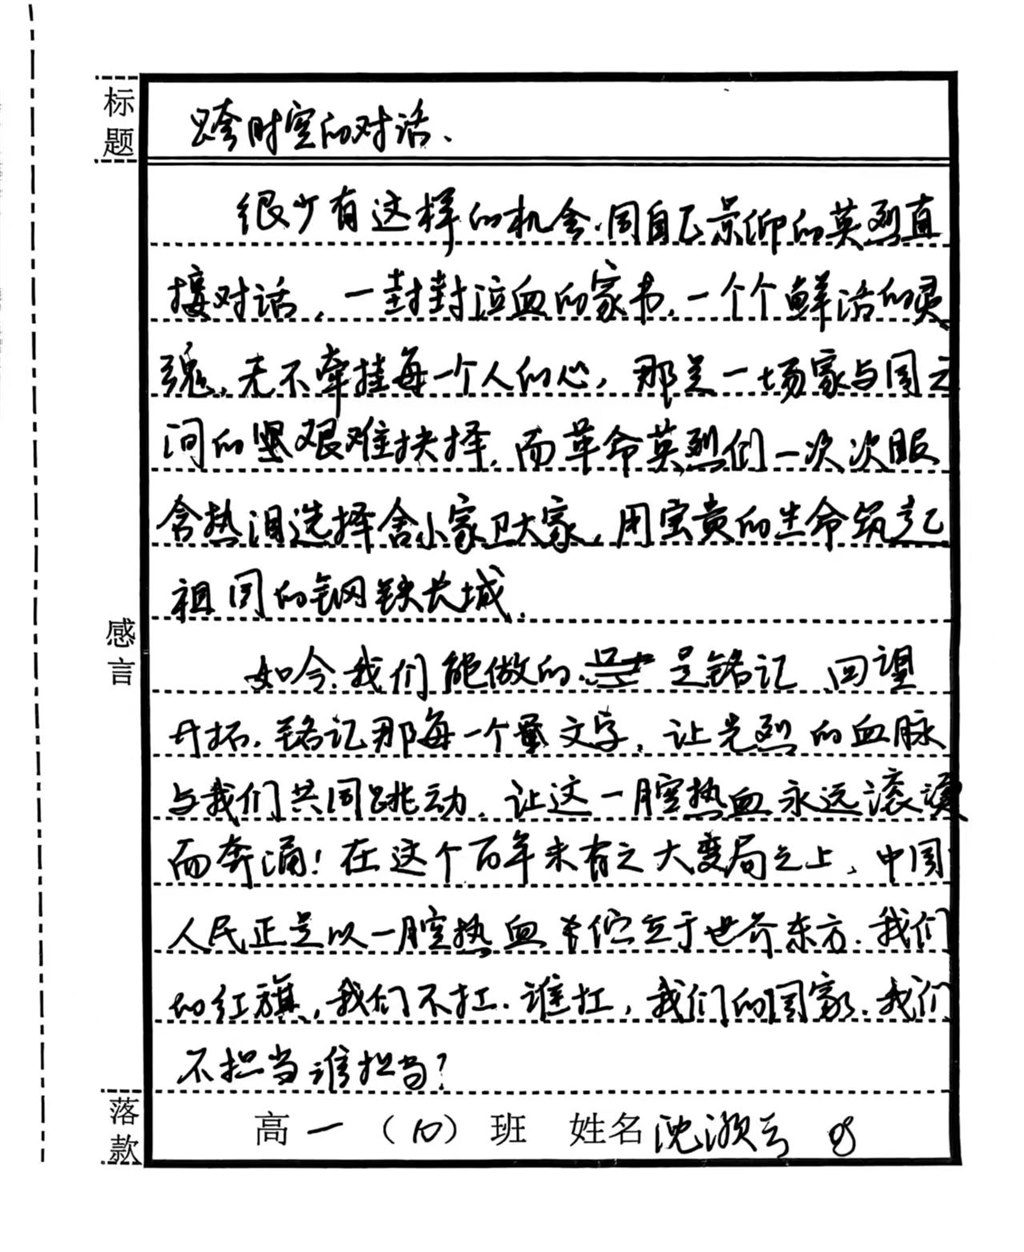 标题
跨时空的对话.
很少有这样的机会,同自己景仰的英烈直
接对话,一封封泣血的家书,一个个鲜活的灵
魂,无不牵挂每一个人的心,那是一场家与国之
间的艰难抉择,而革命英烈们一次次眼
含热泪选择舍小家卫大家,用宝贵的生命筑起
祖国的钢铁长城.
感言
如今,我们能做的,是铭记 回望
开拓,铭记那每一个文字,让先烈的血脉
与我们共同跳动,让这一腔热血永远滚烫
而奔涌!在这个百年未有之大变局之上,中国
人民正是以一腔热血 立于世界东方.我们
的红旗,我们不扛.谁扛,我们的国家.我们
不担当谁担当?
落款
高一(10)班 姓名 沈灏云